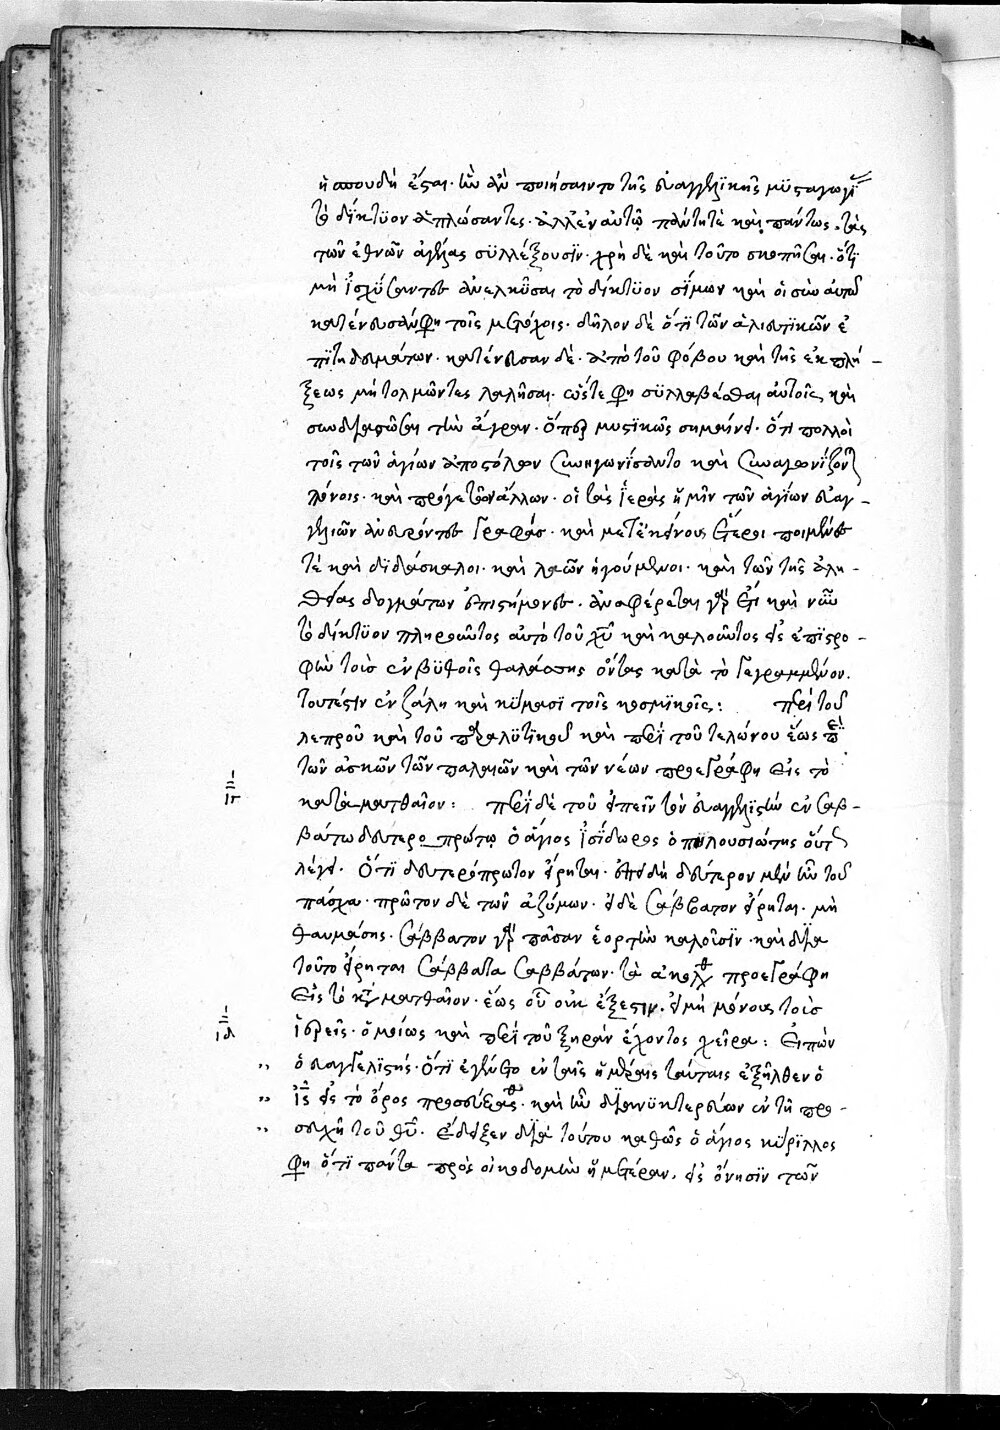 ἡ σπουδὴ ἔσται. ὧν ἂν ποιήσαιντο τῆς εὐαγγελϊκῆς μϋσταγωγί
τὸ δίκτϋον ἁπλώσαντες. ἀλλ' ἐν αὐτῷ πάντῃ τὲ καὶ πάντως. τὰς
τῶν ἐθνῶν ἀγέλας σϋλλέξουσϊν. χρὴ δὲ καὶ τοῦτο σκοπῆσαι. ὅτϊ
μὴ ἰσχύσαντες ἀνελκῦσαι τὸ δίκτϋον σίμων καὶ οἱ σὺν αὐτῶ
κατένευσάν φη τοῖς μετόχοις. δῆλον δὲ ὅτϊ τῶν ἁλιευτϊκῶν ἐ
πϊτηδευμάτων. κατένευσαν δὲ. ἀπὸ τοῦ φόβου καὶ τῆς ἐκπλή –
ξεως μὴ τολμῶντες λαλῆσαι. ὥστε φη σϋλλαβέσθαι αὐτοῖς καὶ
συνδιασῶσαι τὴν ἄγραν. ὅπερ μυστϊκῶς σημαίνει. ὅτι πολλοὶ
τοῖς τῶν ἁγίων ἀποστόλων συνηγωνίσαντο καὶ συναγωνϊζον
πόνοις. καὶ πρόγε τῶν ἄλλων. οἱ τὰς ἱερὰς ἡμῖν τῶν ἁγίων εὐαγ –
γελιῶν ἀνευρόντες γραφάσ. καὶ μετ' ἐκείνους ἕτεροι ποιμένες
τὲ καὶ δϊδάσκαλοι. καὶ λαῶν ἡγούμενοι. καὶ τῶν τῆς ἀλη –
θείας δογμάτων ἐπιστήμονες. ἀναφέρεται γὰρ ἔτι καὶ νῦν
τὸ δίκτϋον πληροῦντος αὐτὸ τοῦ χυ καὶ καλοῦντος εἰς ἐπϊστρο –
φὴν τοὺσ ἐν βϋθοῖς θαλάσσης ὄντας κατὰ τὸ γεγραμμένον.
τουτέστιν ἐν ζάλη καὶ κϋμασϊ τοῖς κοσμϊκοῖς: περὶ τοῦ
λεπροῦ καὶ τοῦ παραλϋτϊκοῦ καὶ περὶ τοῦ τελώνου ἕως περὶ
τῶν ἀσκῶν τῶν παλαιῶν καὶ τῶν νέων προεγράφη εἰς τὸ
κατὰ ματθαῖον: περὶ δὲ τοῦ εἰπεῖν τὸν εὐαγγελϊστὴν ἐν σαβ –
βάτω δευτερο πρώτῳ ὁ ἅγιος ϊσίδωρος ὁ πηλουσιώτης οὕτ
λέγει. ὅτϊ δευτερόπρωτον εἴρηται. ἐπειδὴ δεύτερον μὲν ἦν τοῦ
πάσχα. πρῶτον δὲ τῶν ἀζύμων. εἰ δὲ σάββατον εἴρηται. μὴ
θαυμάσῃς. σάββατον γὰρ πᾶσαν ἑορτὴν καλοῦσϊν. καὶ διὰ
τοῦτο εἴρηται σάββατα σαββάτων. τὰ ἀκολθ προεγράφη
εἰς τὸ κατ ματθαῖον. ἕως οὗ οὐκ ἔξεστιν. εἰ μὴ μόνους τοὺσ
ἱερεῖς. ὁμοίως καὶ περὶ τοῦ ξηρὰν ἔχοντος χεῖρα: εἰπὼν
ὁ εὐαγγελϊστής. ὅτϊ ἐγένετο ἐν ταῖς ἡμέραις ταύταις ἐξῆλθεν ὁ
ις εἰς τὸ ὄρος προσεύξασθ. καὶ ἦν διανϋκτερεύων ἐν τῆ προ –
σευχῆ τοῦ θυ. ἔδειξεν διὰ τούτου καθὼς ὁ ἅγιος κϋρϊλλος
φη ὅτϊ πάντα πρὸς οἰκοδομὴν ἡμετέραν. εἰς ὄνησϊν τῶν